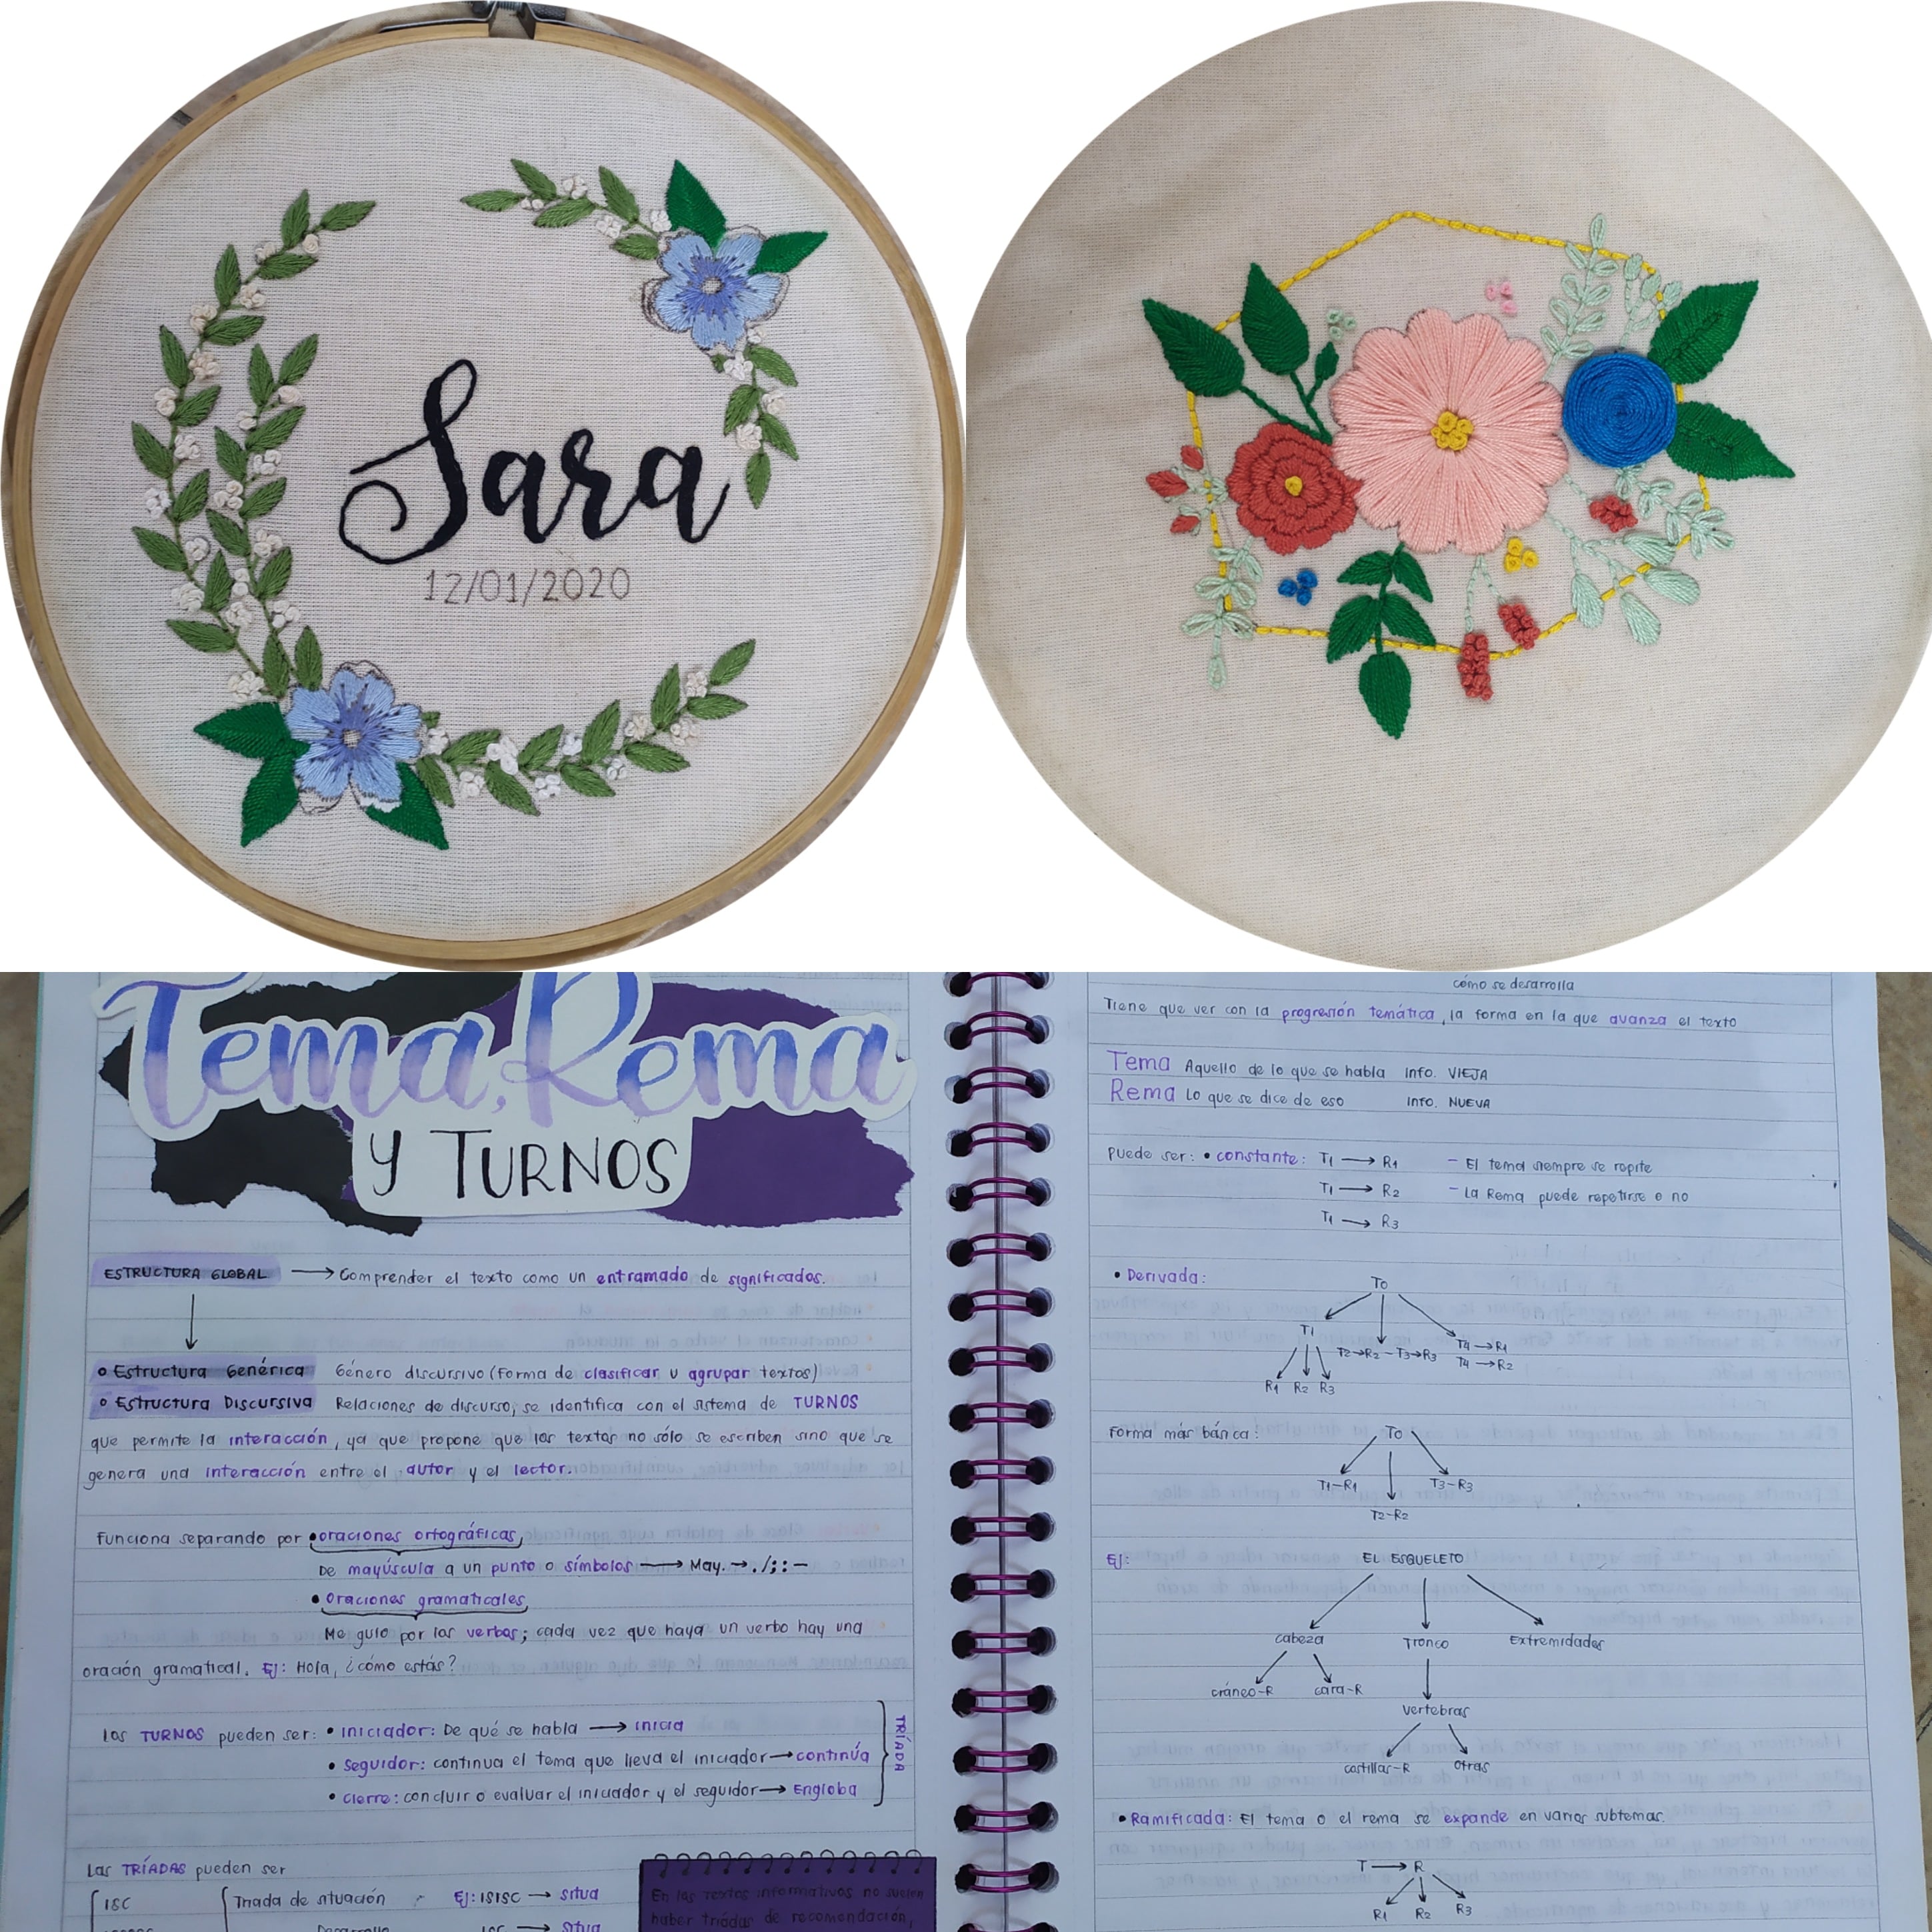 Sara
12/01/2020
Tema, Rema
y TURNOS
ESTRUCTURA GLOBAL → Comprender el texto como un entramado de significados.
• Estructura Genérica Género discursivo (forma de clasificar y agrupar textos)
• Estructura Discursiva Relaciones de discurso, se identifica con el sistema de TURNOS
que permite la interacción, ya que propone que los textos no sólo se escriben sino que se
genera una interacción entre el autor y el lector.
Funciona separando por • oraciones ortográficas,
De mayúscula a un punto o símbolos → May. → . / ; : –
• Oraciones gramaticales,
Me guío por los verbos; cada vez que haya un verbo hay una
oración gramatical. Ej: Hola, ¿cómo estás?
Los TURNOS pueden ser: • Iniciador: De qué se habla → inicia
• Seguidor: continua el tema que lleva el iniciador → continúa
• Cierre: concluir o evaluar el iniciador y el seguidor → Engloba
TRÍADA
Las TRÍADAS pueden ser
ISC Triada de situación Ej: ISISC → Sitúa
Desarrollo ISC → Sitúa
En los textos informativos no suelen
haber tríadas de recomendación,
cómo se desarrolla
Tiene que ver con la progresión temática, la forma en la que avanza el texto
Tema Aquello de lo que se habla Info. VIEJA
Rema Lo que se dice de eso Info. NUEVA
Puede ser: • constante: T1 → R1 – El tema siempre se repite
T1 → R2 – La Rema puede repetirse o no
T1 → R3
• Derivada: To
T1 T2→R2 – T3→R3 T4 → R1
T4 → R2
R1 R2 R3
Forma más básica: To
T1–R1 T3–R3
T2–R2
Ej: EL ESQUELETO
Cabeza Tronco Extremidades
cráneo–R cara–R
vertebras
costillas–R otras
• Ramificada: El tema o el rema se expande en varios subtemas.
T → R
R1 R2 R3